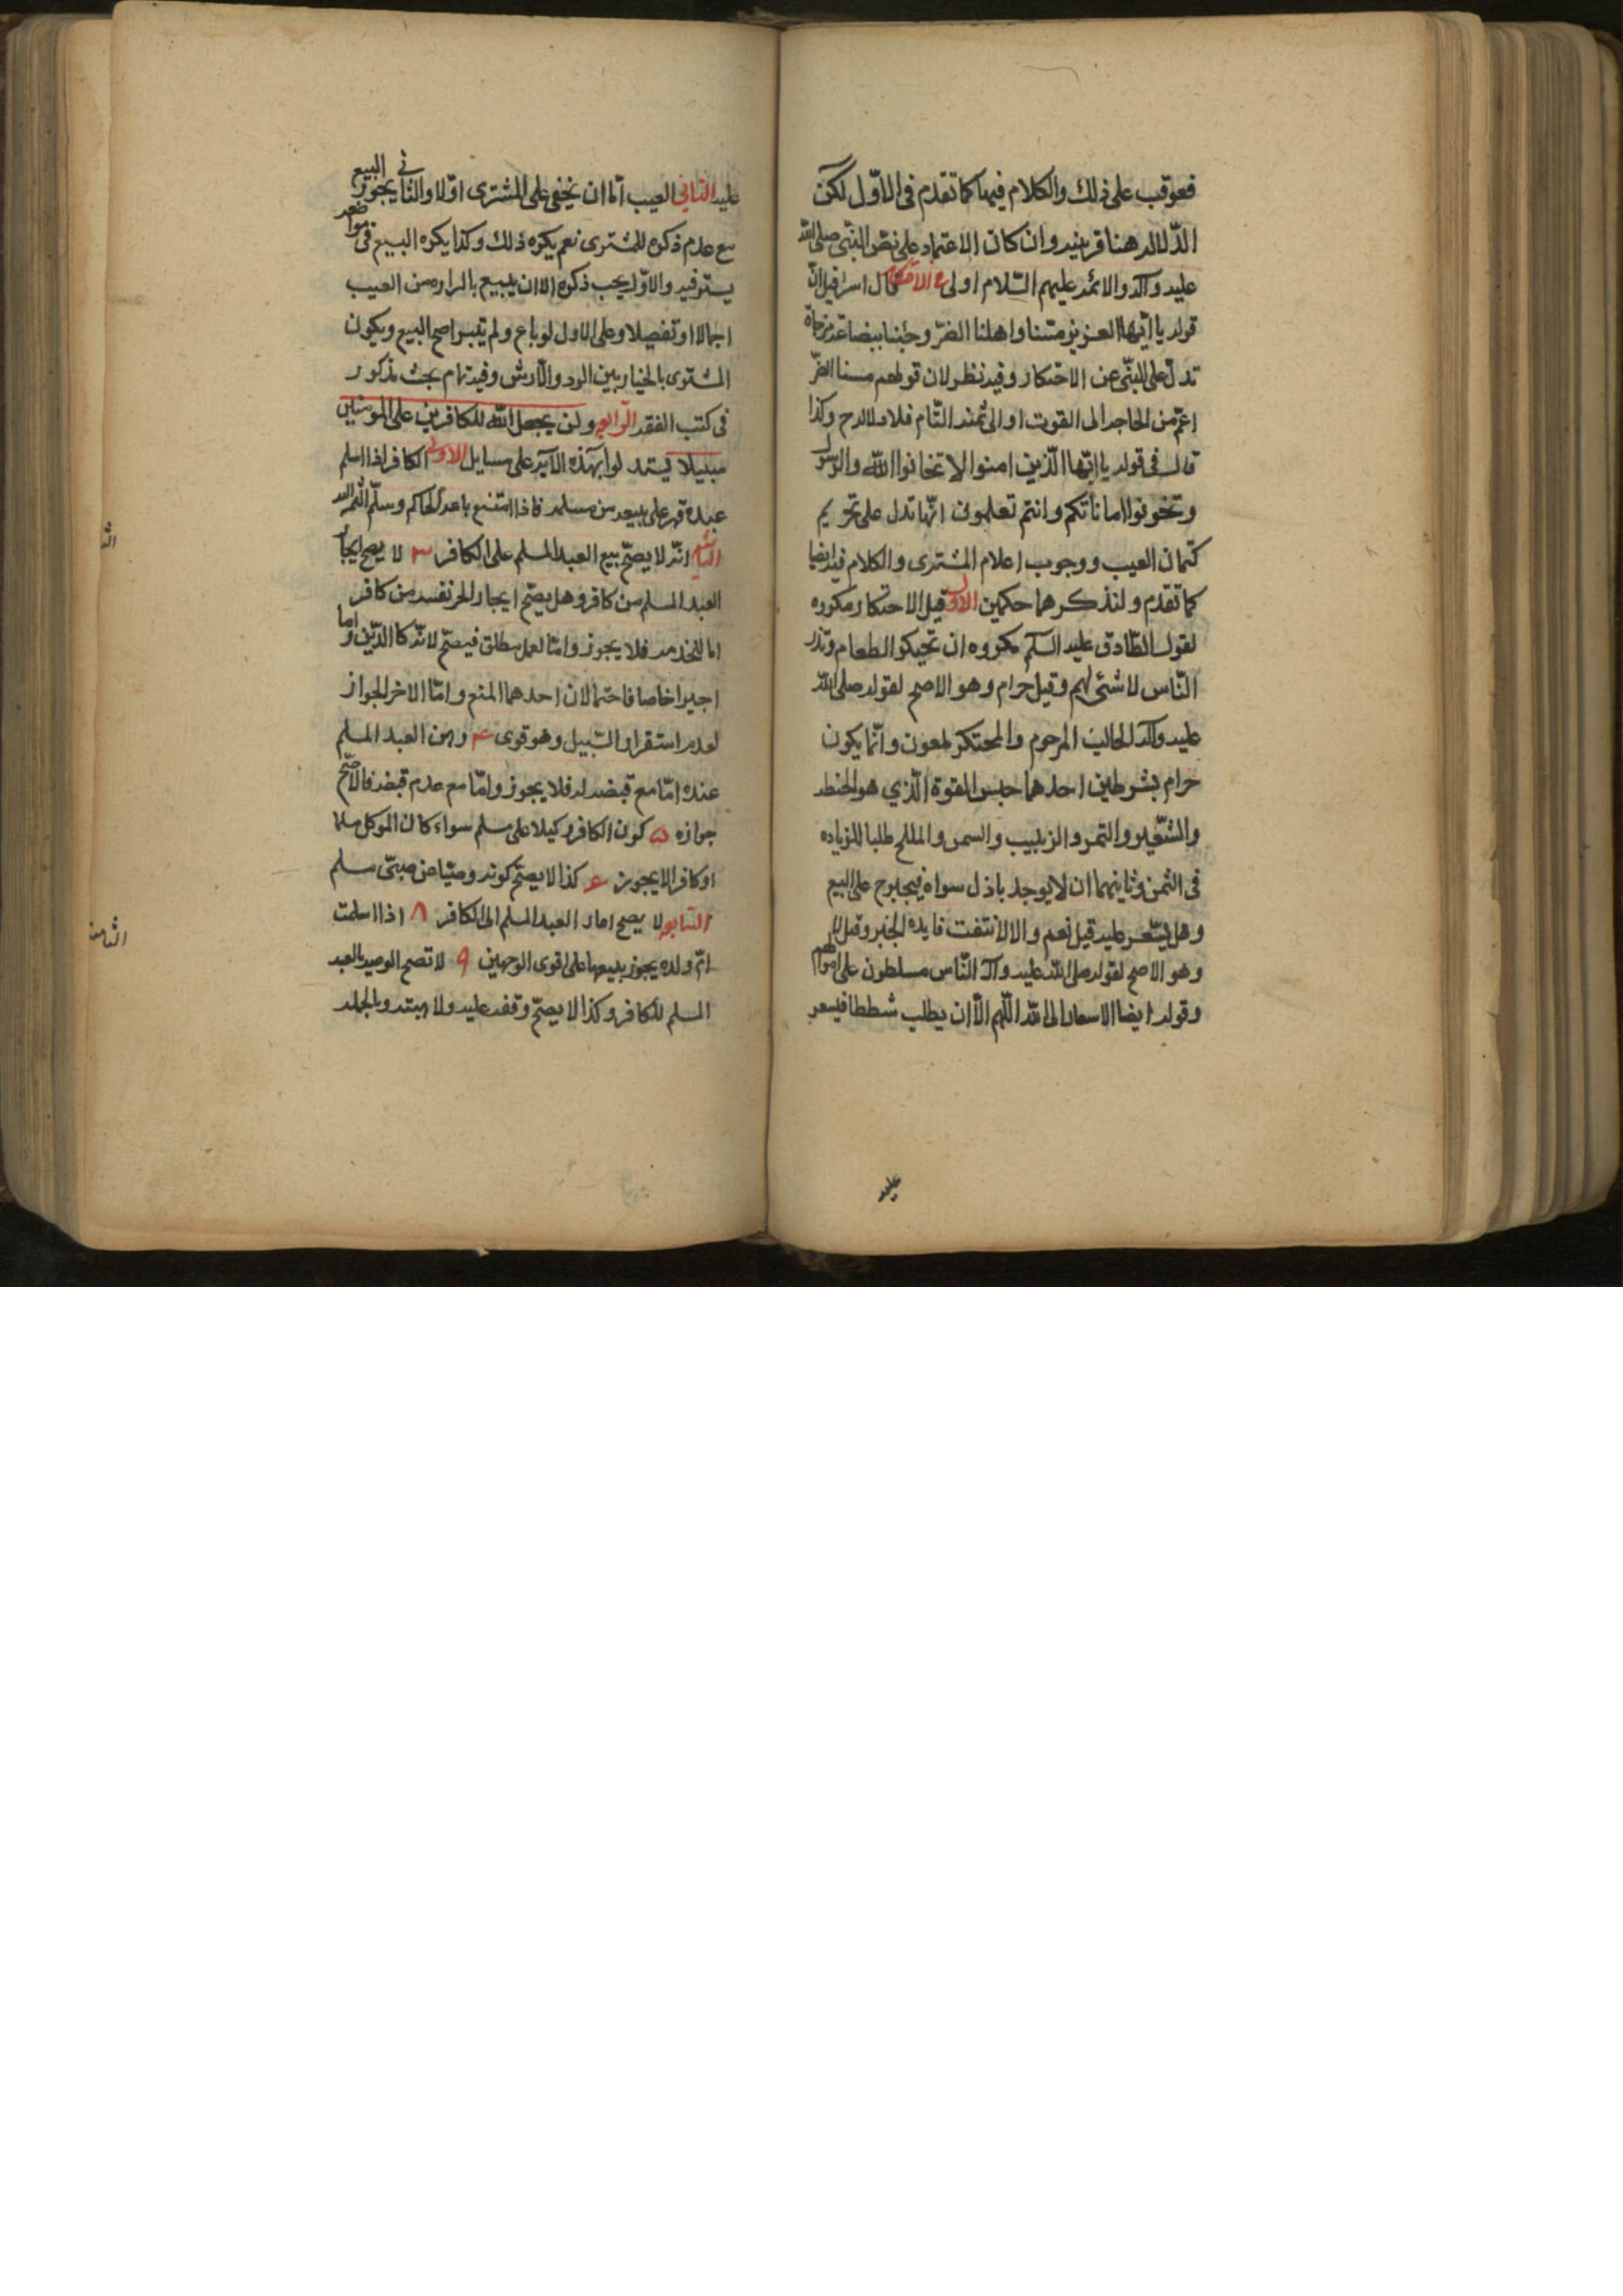 فعوقب على ذلك والكلام فيها كما تقدم فى الاوّل لكن
الدّلاله هنا قرينيه وان كان الاعتماد على نصّ النبّى صلى الله
عليه وآله والائمه عليهم السّلام اولى فى الاحتكار قال اسرافيل انّ
قوله يا ايّها العزيز مسّنا واهلنا الضرّ وجئنا ببضاعة مزجاة
تدلّ على النهّى عن الاحتكار وفيه نظر لان قولهم مسنا الضرّ
اعمّ من الحاجه الى القوت او الى ثمنه التّام فلا دلاله ح وكذا
قال فى قوله يا ايّها الّذين امنوا لا تخانوا الله والرسول
وتخونوا اماناتكم وانتم تعلمون انّها تدل على تحريم
كتمان العيب ووجوب اعلام المشترى والكلام فيه ايضا
كما تقدم ولنذكر هما حكمين الاول قيل الاحتكار مكروه
لقول الصّادق عليه السّلم مكروه ان تحتكر الطعام وتذر
النّاس لا شئ لهم وقيل حرام وهو الاصح لقوله صلى الله
عليه وآله الجالب المرحوم والمحتكر ملعون وانّما يكون
حرام بشرطين احدهما حبس القوة الّذي هو الحنطه
والشّعير والتمر والزبيب والسمن والملح طلبا للزياده
فى الثمن وثانيهما ان لا يوجد باذل سواه فيجبر ح على البيع
وهل يسّعر عليه قيل نعم والا لانتفت فايده الجبر وقيل لا
وهو الاصح لقوله صلى الله عليه وآله النّاس مسلطون على اموالهم
وقوله ايضا الاسعار الى الله اللّهم الّا ان يطلب شططا فيسعر
عليه
عليه الثاني العيب امّا ان يخفى على المشترى اوّلا والثانى يجوز البيع
مع عدم ذكره للمشترى نعم يكره ذلك وكذا يكره البيع فى مواضع
يستر فيه والاوّل يجب ذكره الا ان يبيع بالبراءه من العيب
اجمالا او تفصيلا وعلى الاول لو باع ولم يتبرا صح البيع ويكون
المشترى بالخيار بين الرد والّارش وفيه تمام بحث مذكور
فى كتب الفقه الرّابعه ولن يجعل الله للكافرين على المومنين
سبيلا يستدلوا بهذه الآيه على مسايل الاولى الكافر اذا اسلم
عبده قهر على بيعه من مسلم فاذا امتنع باعه الحاكم وسلّم الثمن اليه
الثانيه انّه لا يصحّ بيع العبد المسلم على الكافر ٣ لا يصح ايجار
العبد المسلم من كافر وهل يصحّ ايجار الحر نفسه من كافر
اما للخدمه فلا يجوز وامّا لعمل مطلق فيصحّ لانّه كالدّين واما
اجيرا خاصا فاحتمالان احدهما المنع وامّا الاخر الجواز
لعدم استقرار السّبيل وهو قوى ٤ رهن العبد المسلم
عنده امّا مع قبضه له فلا يجوز وامّا مع عدم قبضه فالاصحّ
جوازه ٥ كون الكافر وكيلا على مسلم سواء كان الموكل مسلما
او كافرا لا يجوز ٦ كذا لا يصحّ كونه وصيّا عن صبىّ مسلم
السّابعه لا يصح اعارة العبد المسلم الى الكافر ٨ اذا اسلمت
امّ ولده يجوز بيعها على اقوى الوجهين ٩ لا تصح الوصيه بالعبد
المسلم للكافر وكذا لا يصحّ وقفه عليه ولا هبته وبالجمله
الثا
الثامنه